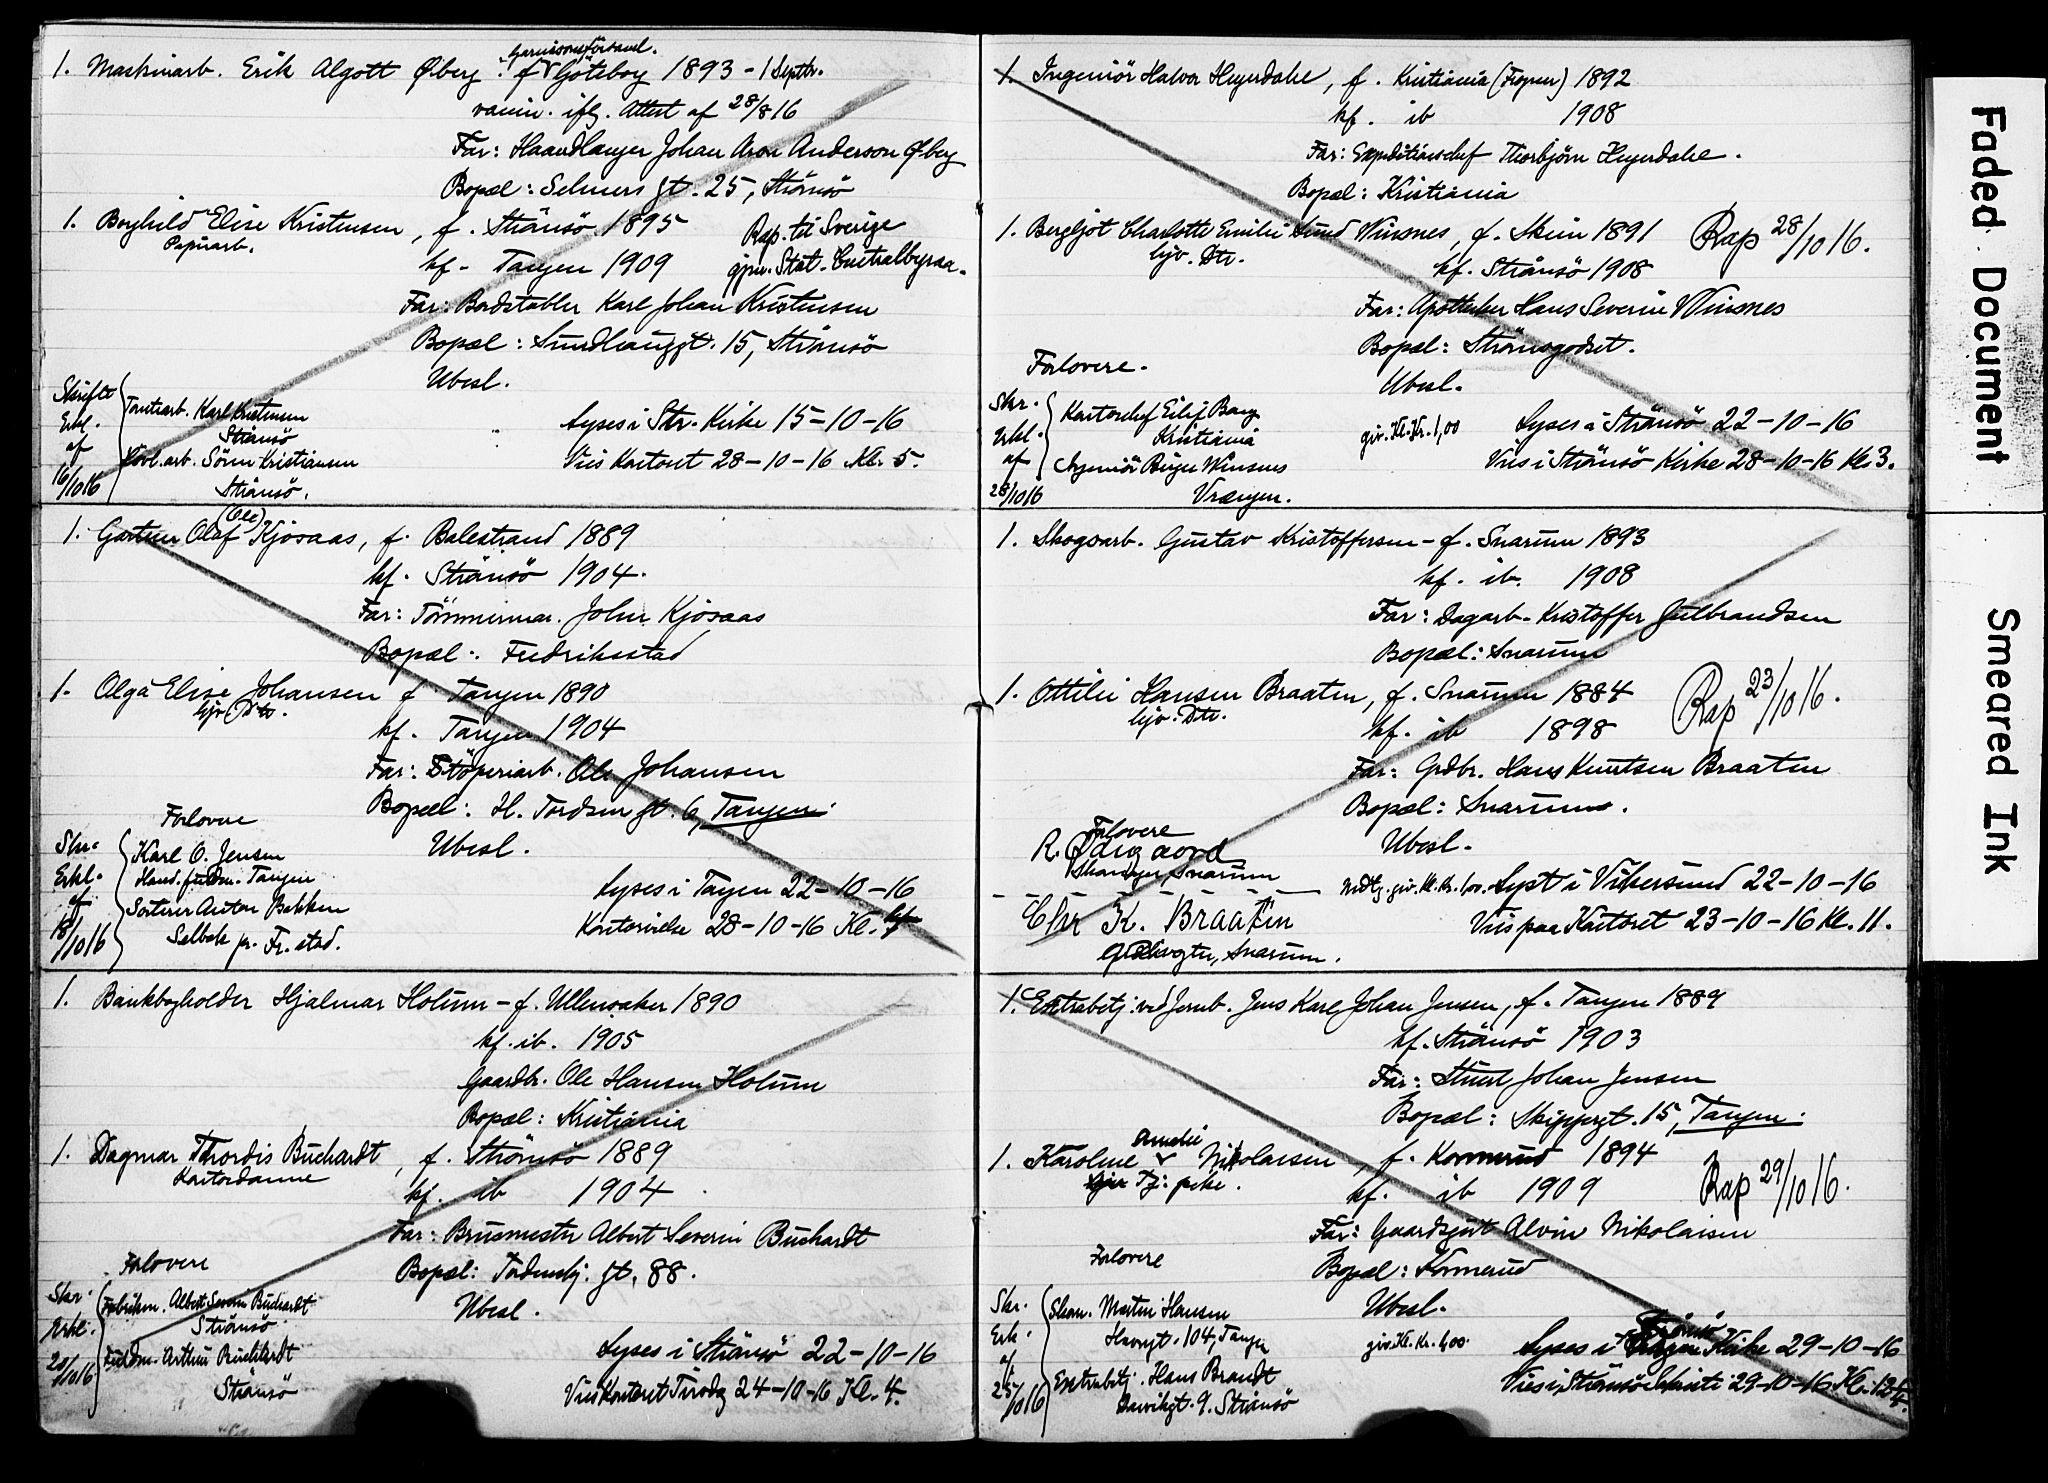 1. Maskinarb. Erik Algott Øberg. f. Göteborg 1893 - 1 Septbr.
Garnisonsförsaml.
vaccin. iflg. Attest af 28/8 16
Far: Haandlanger Johan Aron Anderson Øberg
Bopæl: Selmers gt. 25, Strömsö
1. Borghild Elise Kristensen, f. Strömsö 1895
Papirarb.
Rap. til Sverige
kf. Tangen 1909
gjen. Stat. Centralbyraa.
Far: Bordstabler Karl Johan Kristensen
Bopæl: Sundhauggt. 15, Strömsö
Ubesl.
Skriftl
Erkl.
af
16/10 16
Tomtearb. Karl Kristensen
Strömsö
arb. Sören Kristiansen
Strömsö.
Lyses i Str. Kirke 15-10-16
Vies Kontoret 28-10-16 Kl. 5.
1. Gartner Olaf (Ole) Kjösaas, f. Balestrand 1889
kf. Strömsö 1904.
Far: Tömmerman. John Kjösaas
Bopæl: Fredriksstad
1. Olga Elise Johansen f. Tangen 1890
hjv. Dtr.
kf. Tangen 1904
Far: Støperiarb. Ole Johansen
Bopæl: H. Tordsen gt. 6, Tangen.
Forlovere
Ubesl.
Skr.
Erkl.
af
18/10 16
Karl O. Jensen
Hand. fuldm. Tangen
Sorterer Anton Bakken
Selbak pr. Fr. stad.
Lyses i Tangen 22-10-16
Kontorvielse 28-10-16 Kl.
1. Bankbogholder Hjalmar Holum - f. Ullensaker 1890
kf. ib. 1905
Gaardbr. Ole Hansen Holum
Bopæl: Kristiania
1. Dagmar Thordis Buchardt, f. Strömsö 1889
Kontordame
kf. ib 1904
Far: Brusmester Albert Severin Buchardt
Bopæl: Tordenskj. gt. 88.
Forlovere
Ubesl.
Skr.
Erkl.
20/10 16
Fabrikm. Albert Severin Buchardt
Strömsö
Fuldm. Arthur Buchardt
Strömsö
Lyses i Strömsö 22-10-16
Vies Kontoret Tirsdag 24-10-16 Kl. 4.
1. Ingeniör Halvor Heyerdahl, f. Kristiania (Frogner) 1892
kf. ib 1908
Far: Expeditionschef Thorbjörn Heyerdahl.
Bopæl: Kristiania
1. Bergljot Charlotte Emilie Sund Winsnes, f. Skien 1891
hjv. Dtr.
Rap 28/10 16.
kf. Strömsö 1908
Far: Apotheker Hans Severin Winsnes
Bopæl: Strömsgodset.
Forlovere.
Ubesl.
Skr.
Erkl.
af
28/10 16
Kontorchef Eilif Bang
Kristiania
Ingeniör Birger Winsnes
Vrængen.
giv. Kl. Kr. 1,00
Lyses i Strömsö 22-10-16
Vies i Strömsö Kirke 28-10-16 Kl. 3.
1. Skogsarb. Gustav Kristoffersen - f. Snarum 1893
kf. ib. 1908
Far: Dagarb. Kristoffer Gulbrandsen
Bopæl: Snarum
1. Ottilie Hansen Braaten, f. Snarum 1884
hjv. Dtr.
Rap 23/10 16.
kf. ib 1898
Far: Grdbr. Hans Knutsen Braaten
Bopæl: Snarum.
Forlovere
Ubesl.
R. Ødegaard
Snarum
Chr K. Braaten
Snarum.
Medlg. giv. Kl. Kr. 1,00. Lyst i Vikersund 22-10-16
Vies paa Kontoret 23-10-16 Kl. 11.
1. Extrabetj. ved Jernb. Jens Karl Johan Jensen, f. Tangen 1889
kf. Strömsö 1903
Far: Stuert Johan Jensen
Bopæl: Skippergt. 15, Tangen.
1. Karoline Amalie Nikolaisen, f. Konnerud 1894
Tj: pike.
Rap 29/10 16.
kf. ib 1909
Far: Gaardsgut Alvin Nikolaisen
Forlovere
Bopæl: Konnerud
Ubesl.
Skr.
Erk.
af
25/10 16
Skom. Martin Hansen
Havngt. 104, Tangen
Extrabetj. Hans Brandt
9. Strömsö
giv. Kl. Kr. 4,00.
Lyses i Strömsö Kirke 29-10-16
Vies i Strömsö 29-10-16 Kl. 12
Faded Document
Smeared Ink